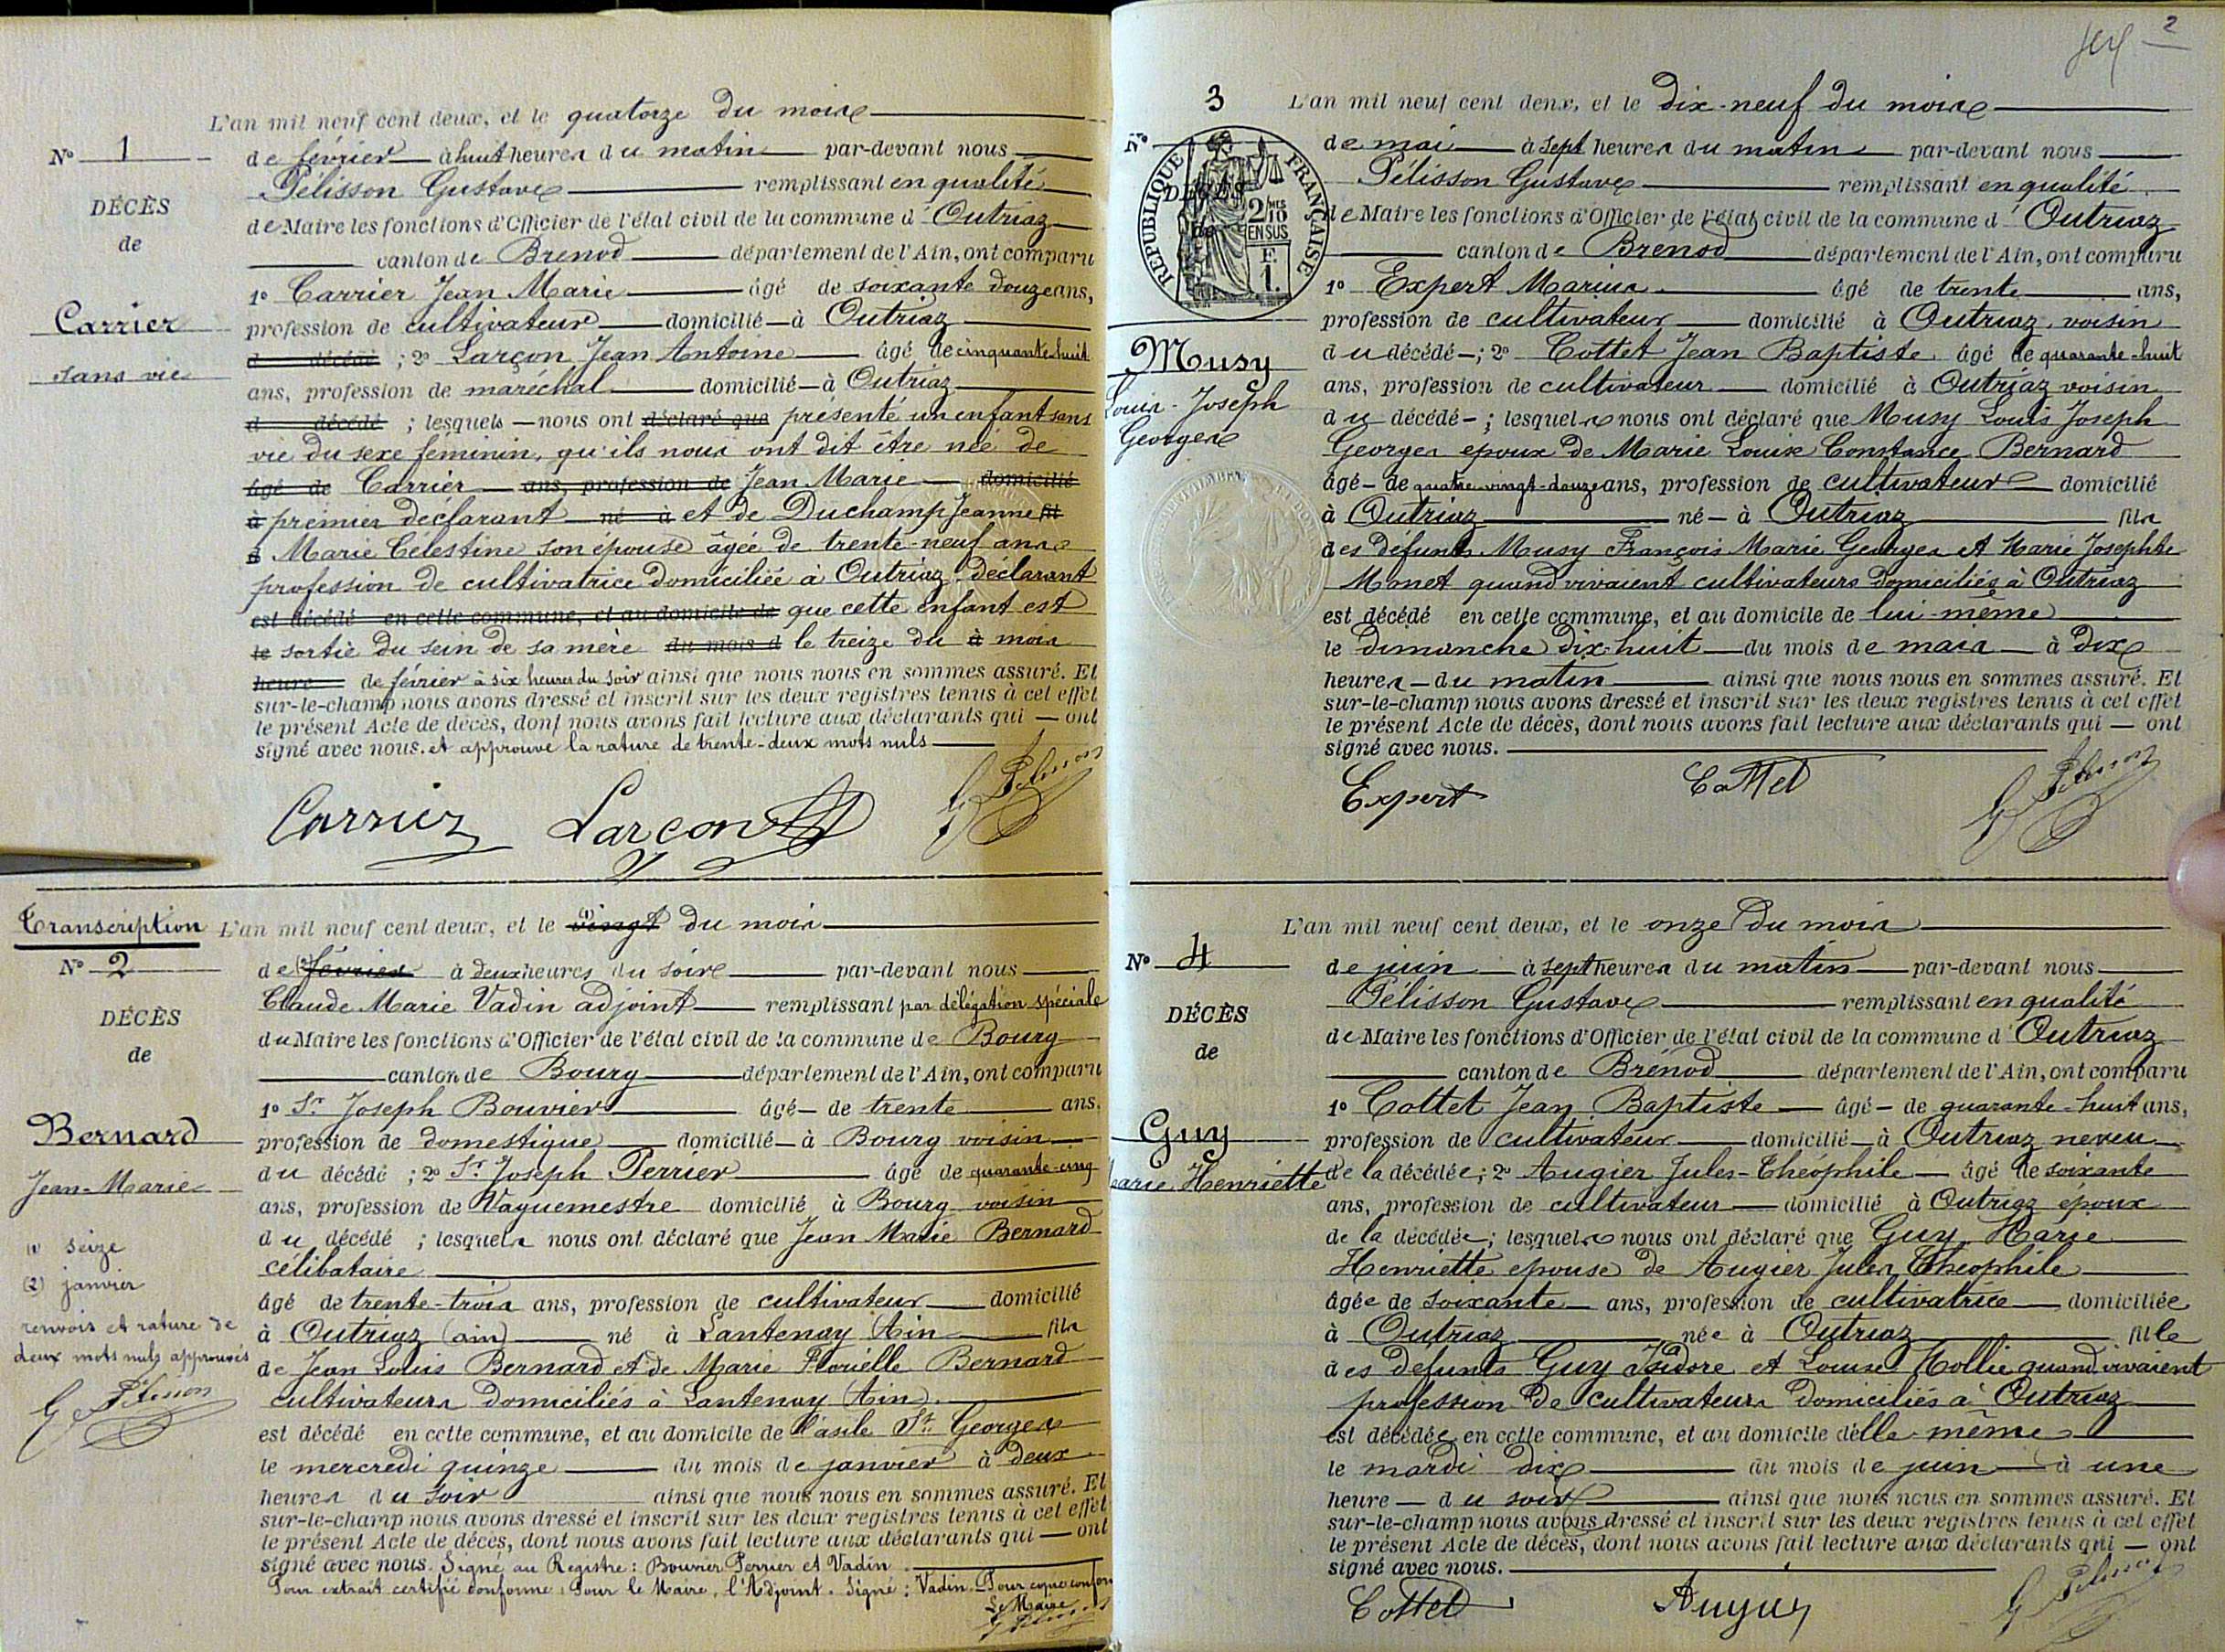 L'an mil neuf cent deux, et le quatorze du mois
N° 1
de février à huit heures du matin par-devant nous
Pélisson Gustave remplissant en qualité
DÉCÈS
de Maire les fonctions d'Officier de l'état civil de la commune d'Outriaz
de
canton de Brenod département de l'Ain, ont comparu
1° Carrier Jean Marie âgé de soixante douze ans,
Carrier
profession de cultivateur domicilié à Outriaz
sans vie
d décédé ; 2° Larçon Jean Antoine âgé de cinquante huit
ans, profession de maréchal domicilié à Outriaz
d décédé ; lesquels nous ont déclaré que présenté un enfant sans
vie du sexe féminin, qu'ils nous ont dit être née de
âgé de Carrier ans, profession de Jean Marie domicilié
à premier déclarant né à et de Duchamp Jeanne fil
d Marie Célestine son épouse âgée de trente-neuf ans
profession de cultivatrice domiciliée à Outriaz déclarant
est décédé en cette commune, et au domicile de que cette enfant est
le sortie du sein de sa mère du mois d le treize du à mois
heure de février à six heures du soir ainsi que nous nous en sommes assuré. Et
sur-le-champ nous avons dressé et inscrit sur les deux registres tenus à cet effet
le présent Acte de décès, dont nous avons fait lecture aux déclarants qui — ont
signé avec nous. et approuvé la rature de trente-deux mots nuls
Carrier Larçon G Pélisson
Transcription
L'an mil neuf cent deux, et le (1) vingt du mois
N° 2
de (2) février à deux heures du soir par-devant nous
Claude Marie Vadin adjoint remplissant par délégation spéciale
DÉCÈS
du Maire les fonctions d'Officier de l'état civil de la commune de Bourg
de
canton de Bourg département de l'Ain, ont comparu
1° Sr Joseph Bouvier âgé de trente ans,
Bernard
profession de domestique domicilié à Bourg voisin
Jean-Marie
du décédé ; 2° Sr Joseph Perrier âgé de quarante-cinq
ans, profession de Vaguemestre domicilié à Bourg voisin
du décédé ; lesquels nous ont déclaré que Jean Marie Bernard
célibataire
(1) seize
(2) janvier
renvois et rature de
deux mots nuls approuvés
G Pélisson
âgé de trente-trois ans, profession de cultivateur domicilié
à Outriaz (ain) né à Lantenay Ain fils
de Jean Louis Bernard et de Marie Florielle Bernard
cultivateurs domiciliés à Lantenay (Ain).
est décédé en cette commune, et au domicile de l'asile St Georges
le mercredi quinze du mois de janvier à deux
heures du soir ainsi que nous nous en sommes assuré. Et
sur-le-champ nous avons dressé et inscrit sur les deux registres tenus à cet effet
le présent Acte de décès, dont nous avons fait lecture aux déclarants qui — ont
signé avec nous. Signé au Registre : Bouvier Perrier et Vadin
Pour extrait certifié conforme : Pour le Maire, l'Adjoint. Signé : Vadin. Pour copie conform
Le Maire
G Pélisson
2
3
L'an mil neuf cent deux, et le dix-neuf du mois
N°
de mai à sept heures du matin par-devant nous
Pélisson Gustave remplissant en qualité
DÉCÈS
de
RÉPUBLIQUE FRANÇAISE
2/10 MES
EN SUS
F.
1.
de Maire les fonctions d'Officier de l'état civil de la commune d'Outriaz
canton de Brenod département de l'Ain, ont comparu
1° Expert Marius âgé de trente ans,
profession de cultivateur domicilié à Outriaz voisin
Musy
Louis-Joseph
Georges
du décédé ; 2° Cottet Jean Baptiste âgé de quarante-huit
ans, profession de cultivateur domicilié à Outriaz voisin
du décédé ; lesquels nous ont déclaré que Musy Louis Joseph
Georges epoux de Marie Louise Constance Bernard
âgé de quatre-vingt-douze ans, profession de cultivateur domicilié
à Outriaz né à Outriaz fils
des défunts Musy François Marie Georges et Marie Josephte
Monet quand vivaient cultivateurs domiciliés à Outriaz
est décédé en cette commune, et au domicile de lui-même
le dimanche dix-huit du mois de mai à dix
heures du matin ainsi que nous nous en sommes assuré. Et
sur-le-champ nous avons dressé et inscrit sur les deux registres tenus à cet effet
le présent Acte de décès, dont nous avons fait lecture aux déclarants qui — ont
signé avec nous.
Expert Cottet G Pélisson
L'an mil neuf cent deux, et le onze du mois
N° 4
de juin à sept heures du matin par-devant nous
Pélisson Gustave remplissant en qualité
DÉCÈS
de Maire les fonctions d'Officier de l'état civil de la commune d'Outriaz
de
canton de Brénod département de l'Ain, ont comparu
1° Cottet Jean Baptiste âgé de quarante-huit ans,
Guy
profession de cultivateur domicilié à Outriaz neveu
arie Henriette
de la décédée ; 2° Augier Jules-Théophile âgé de soixante
ans, profession de cultivateur domicilié à Outriaz époux
de la décédée ; lesquels nous ont déclaré que Guy Marie
Henriette epouse de Augier Jules Théophile
âgée de soixante ans, profession de cultivatrice domiciliée
à Outriaz née à Outriaz fille
des defunts Guy Isidore et Louise Hollie quand vivaient
profession de cultivateurs domiciliés à Outriaz
est décédée en cette commune, et au domicile d'elle-même
le mardi dix du mois de juin à une
heure du soir ainsi que nous nous en sommes assuré. Et
sur-le-champ nous avons dressé et inscrit sur les deux registres tenus à cet effet
le présent Acte de décès, dont nous avons fait lecture aux déclarants qui — ont
signé avec nous.
Cottet Augier G Pélisson